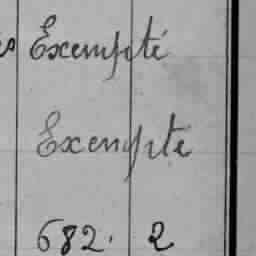 Exempté
Exempte
682. 2